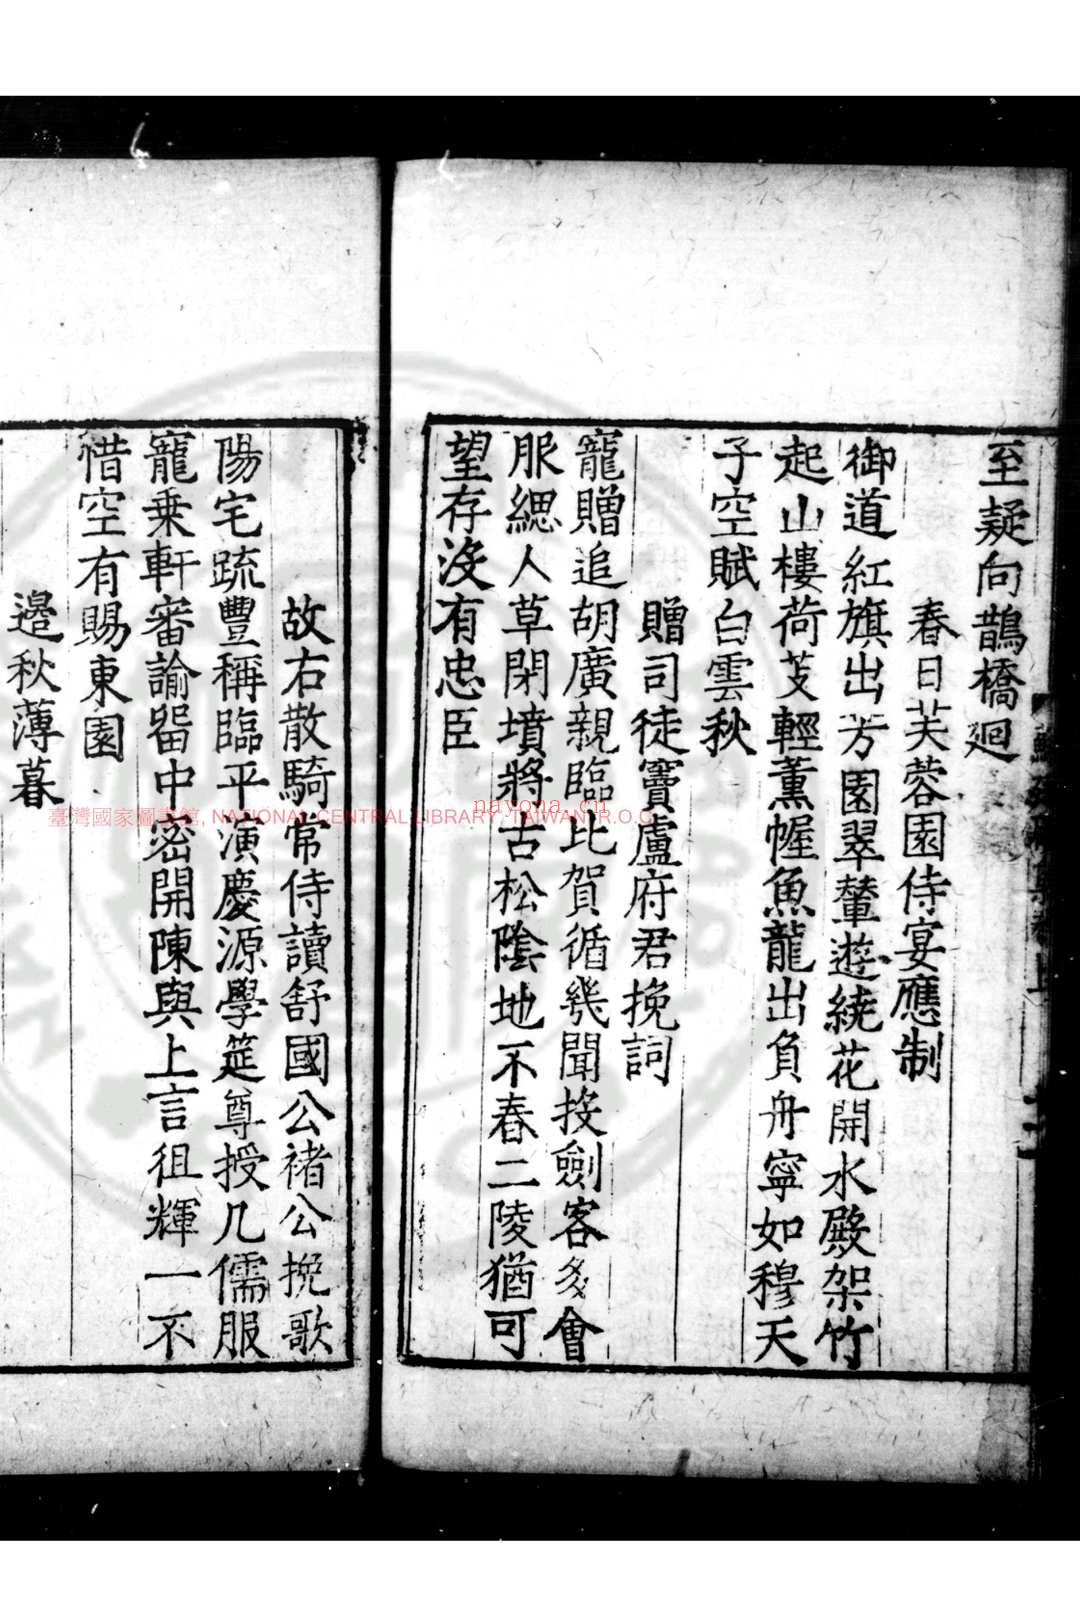 至疑向鵲橋廻
春日芙蓉園侍宴應制
御道紅旗出芳園翠輦遊繞花開水殿架竹
起山樓荷芰輕薰幄魚龍出負舟寧如穆天
子空賦白雲秋
贈司徒竇盧府君挽詞
寵贈追胡廣親臨比賀循幾聞投劍客多會
服緦人草閉墳將古松陰地不春二陵猶可
望存沒有忠臣
故右散騎常侍讀舒國公褚公挽歌
陽宅疏豐稱臨平演慶源學筵尊授几儒服
寵乗軒審諭畱中密開陳與上言徂輝一不
惜空有賜東園
邉秋薄暮
臺灣國家圖書館, NATIONAL CENTRAL LIBRARY, TAIWAN (R.O.C.)
nayona.cn